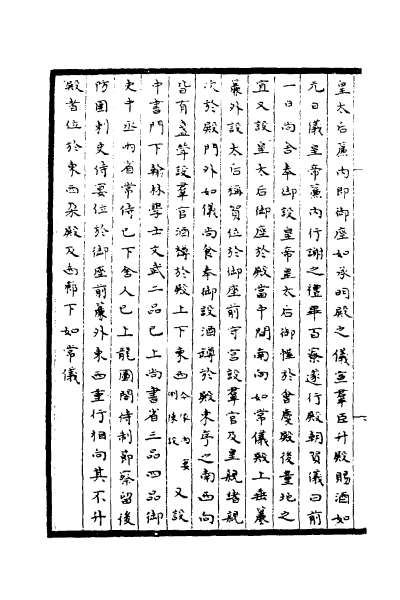 皇太后簾內即御座如承明殿之儀宣羣臣升殿賜酒如
元日儀皇帝簾內行謝之禮畢百寮遂行殿朝賀儀曰前
一日尚舍奉御設皇帝皇太后御幄於會慶殿後量地之
宜又設皇太后御座於殿當中間南向如常儀殿上垂簾
簾外設太后稱賀位於御座前守宮設羣官及皇親諸親
次於殿門外如儀尚食奉御設酒罇於殿東序之南西向
皆有設羣官酒罇於殿上下東西令依內宴例陳設又設
中書門下翰林學士文武二品已上尚書省三品四品御
史中丞內省常侍已下舍人已上龍圖閣待制節察留後
防團刺史侍宴位於御座前簾外東西重行相向其不升
殿者位於東西朵殿及兩廊下如常儀